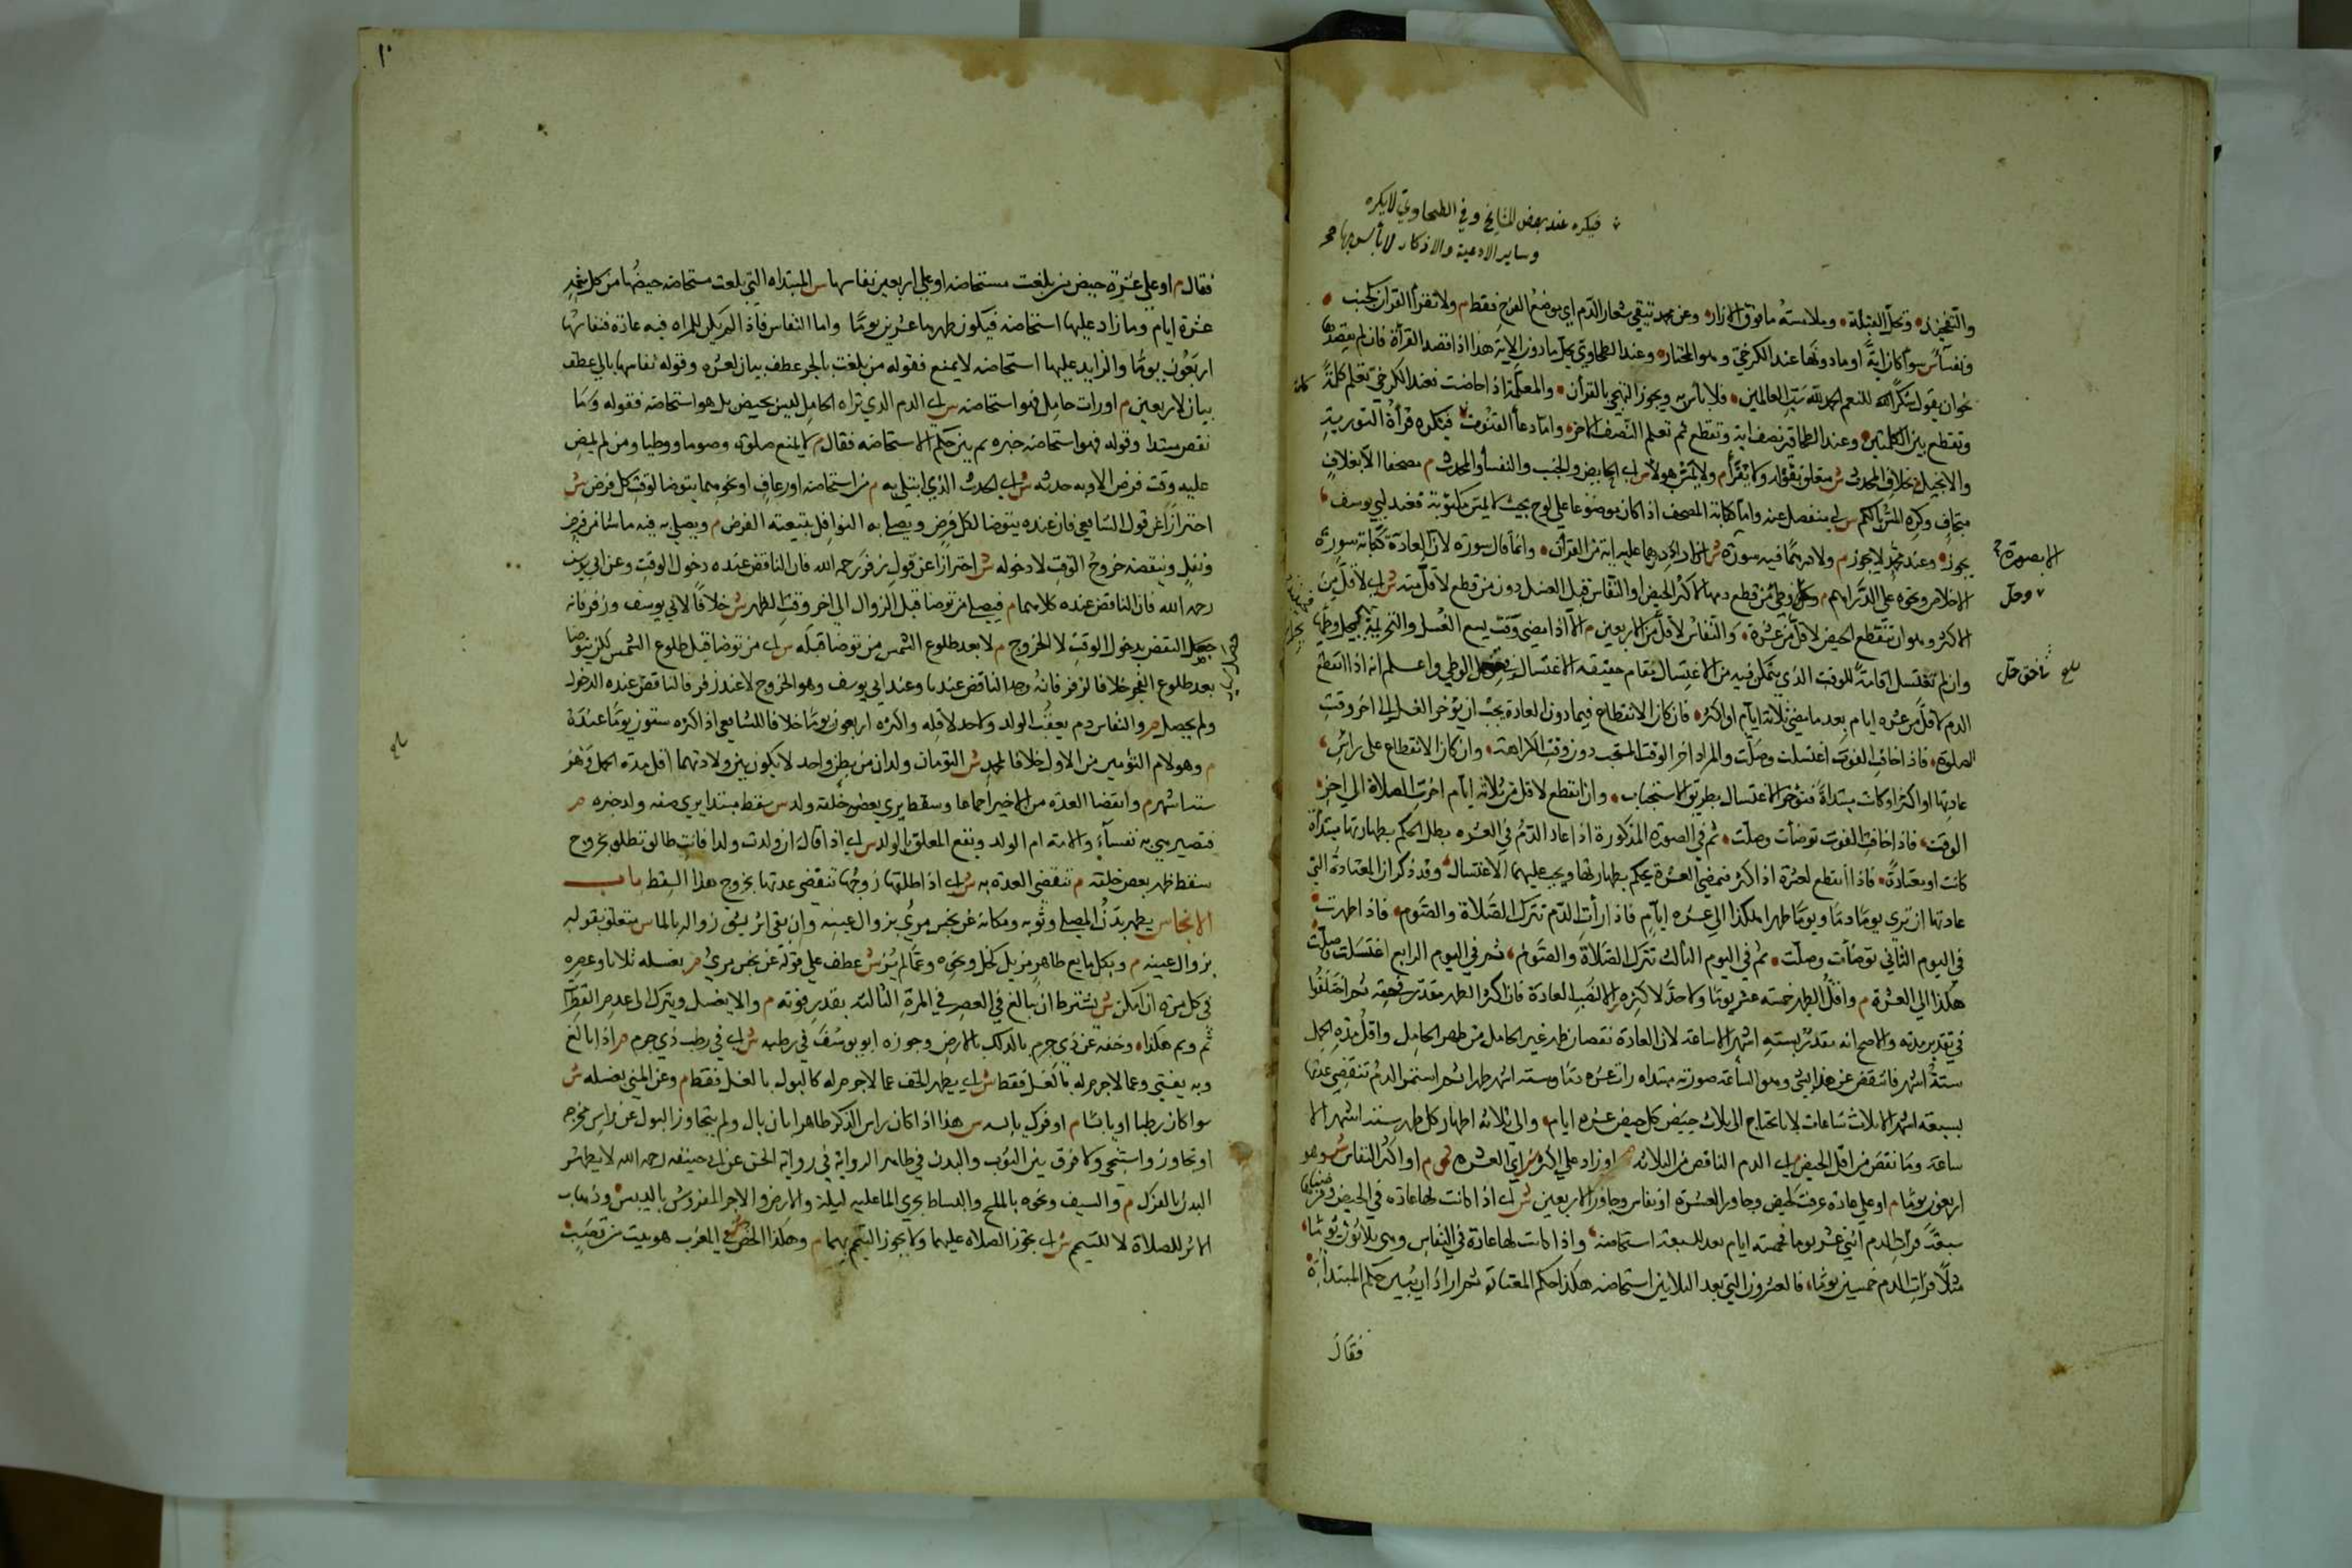 فيكره عند بعض المشايخ وفي الطحاوي لا يكره
وساير الادعية والاذكار لا بأس بها
والتفخيذ وتحل القبلة وملامسة ما فوق الازار وعن محمد تتقي شعار الدم اي موضع الفرج فقط م ولا تقرأ القرآن كجنب
ونفسآ س سوآ كان آية او ما دونها عند الكرخي وهو المختار وعند الطحاوي يحل ما دون الاية هذا اذا قصد القرأة فان لم يقصدها
نحو ان يقول شكرا لله للنعم الحمد لله رب العالمين فلا بأس به ويجوز التهجي بالقرأن والمعلمة اذا حاضت فعند الكرخي تعلم كلمة كلمة
وتقطع بين الكلمتين وعند الطحاوي نصف آية وتقطع ثم تعلم النصف الاخر واما دعأ القنوت فيكره قرأة التورية
والانجيل بخلاف المحدث ش متعلق بقوله ولا تقرأ م ولا يمس هولا س اي الحايض والجنب والنفسأ والمحدث م مصحفا الا بغلاف
متجاف وكره المس بالكم س اي منفصل عنه واما كتابة المصحف اذا كان موضوعا على لوح بحيث لا يمس مكتوبة فعند ابي يوسف
يجوز وعند محمد لا يجوز م ولا درهما فيه سورة ش اراد درهما عليه آية من القرآن وانما قال سورة لان العادة كتابة سورة
الا بصرة
الاخلاص ونحوه على الدراهم م وحل وطئ من قطع دمها لاكثر الحيض او النفاس قبل الغسل دون من قطع لاقل منه ش اي لاقل من
وحل
الاكثر وهو ان ينقطع الحيض لاقل من عشرة والنفاس لاقل من الاربعين م الا اذا مضى وقت يسع الغسل والتحريمة فيحل وطئها
وان لم تغتسل اقامة للوقت الذي يتمكن فيه من الاغتسال مقام حقيقة الاغتسال في حل الوطي واعلم انه اذا انقطع
الدم لاقل من عشرة ايام بعد ما مضى ثلاثة ايام او اكثر فان كان الانقطاع فيما دون العادة يجب ان يؤخر الغسل الى اخر وقت
الصلوة فاذا خافت الفوت اغتسلت وصلت والمراد اخر الوقت المستحب دون وقت الكراهة وان كان الانقطاع على راس
عادتها او اكثر او كانت مبتدأة فتؤخر الاغتسال بطريق الاستحباب وان انقطع لاقل من ثلاثة ايام اخرت الصلاة الى اخر
الوقت فاذا خافت الفوت توضأت وصلت ثم في الصورة المذكورة اذا عاد الدم في العشرة بطل الحكم بطهارتها مبتدأة
كانت او معتادة فاذا انقطع لعشرة او اكثر فبمضي العشرة يحكم بطهارتها ويجب عليهما الاغتسال وقد ذكر ان المعتادة التي
عادتها ان ترى يوما دما ويوما طهرا هكذا الى عشرة ايام فاذا رأت الدم تترك الصلاة والصوم فاذا طهرت
في اليوم الثاني توضأت وصلت ثم في اليوم الثالث تترك الصلاة والصوم ثم في اليوم الرابع اغتسلت وصلت
هكذا الى العشرة م واقل الطهر خمسة عشر يوما ولا حد لاكثره الا لنصب العادة فان اكثر الطهر مقدر في حقه ثم اختلفوا
في تقدير مدته والاصح انه مقدر بستة اشهر الا ساعة لان العادة نقصان طهر غير الحامل من طهر الحامل واقل مدة الحمل
ستة اشهر فانتقص عن هذا بشئ وهو الساعة صورته مبتداة رات عشرة دما وستة اشهر طهرا ثم استمر الدم تنقضي عدتها
بتسعة اشهر الا ثلاث ساعات لانا نحتاج الى ثلاث حيض كل حيض عشرة ايام والى ثلاثة اطهار كل طهر ستة اشهر الا
ساعة وما نقص من اقل الحيض س اي الدم الناقص من الثلاثة م او زاد على اكثره س اي العشرة م او اكثر النفاس ش وهو
اربعون يوما م او على عادة عرفت لحيض وجاوز العشرة او نفاس وجاوز الاربعين ش اي اذا كانت لها عادة في الحيض وفرضناها
سبعة فرأت الدم اثني عشر يوما فخمسة ايام بعد السبعة استحاضة واذا كانت لها عادة في النفاس وهي ثلاثون يوما
مثلا فرات الدم خمسين يوما فالعشرون التي بعد الثلاثين استحاضة هكذا حكم المعتادة ثم اراد ان يبين حكم المبتدأة
فقال
١٠
فقال م او على عشرة حيض من بلغت مستحاضة او على اربعين نفاسها س المبتداة التي بلغت مستحاضة حيضها من كل شهر
عشرة ايام وما زاد عليها استحاضة فيكون طهرها عشرين يوما واما النفاس فاذا لم يكن للمراة فيه عادة فنفاسها
اربعون يوما والزايد عليها استحاضة لا يمنع فقوله من بلغت بالجر عطف بيان لعشرة وقوله نفاسها بالي عطف
بيان لاربعين م او رات حامل فهو استحاضة س اي الدم الذي تراه الحامل ليس بحيض بل هو استحاضة فقوله وما
نقص مبتدا وقوله فهو استحاضة خبره ثم بين حكم الاستحاضة فقال م لا يمنع صلوة وصوما ووطيا ومن لم يمض
عليه وقت فرض الا وبه حدثه ش اي الحدث الذي ابتلي به م من استحاضة او رعاف او نحوهما يتوضا لوقت كل فرض ش
احترازا عن قول الشافعي فان عنده يتوضا لكل فرض ويصلي به النوافل بتبعية الفرض م ويصلي به فيه ما شا من فرض
ونفل وينقضه خروج الوقت لا دخوله ش احترازا عن قول زفر رحمه الله فان الناقض عنده دخول الوقت وعن ابي يوسف
رحمه الله فان الناقض عنده كلاهما م فيصلي من توضا قبل الزوال الى اخر وقت الظهر ش خلافا لابي يوسف وزفر فانه
حصل النقض بدخول الوقت لا الخروج م لا بعد طلوع الشمس من توضا قبله س اي من توضا قبل طلوع الشمس لكن توضا
بعد طلوع الفجر خلافا لزفر فانه وجد الناقض عندنا وعند ابي يوسف وهو الخروج لا عند زفر فالناقض عنده الدخول
ولم يحصل م والنفاس دم يعقب الولد ولا حد لاقله واكثره اربعون يوما خلافا للشافعي اذ اكثره ستون يوما عنده
م وهو لام التؤمين من الاول خلافا لمحمد ش التؤمان ولدان من بطن واحد لا يكون بين ولادتهما اقل مدة الحمل وهو
ستة اشهر م وانقضا العدة من الاخير اجماعا وسقط يرى بعض خلقه ولد س سقط مبتدا يرى صفة ولد خبره م
فتصير هي به نفسآء والامة ام الولد ويقع المعلق بالولد س اي اذا قال ان ولدت ولدا فانت طالق تطلق بخروج
سقط ظهر بعض خلقه م تنقضي العدة به ش اي اذا طلقها زوجها تنقضي عدتها بخروج هذا السقط باب
الانجاس يطهر بدن المصلي وثوبه ومكانه عن نجس مرئي بزوال عينه وان بقي اثر يشق زواله بالما س متعلق بقوله
بزوال عينه م وبكل مايع طاهر مزيل كخل ونحوه وعما لم ير ش عطف على قوله عن نجس مرئ م بغسله ثلاثا وعصره
في كل مرة ان امكن ش يشترط ان يبالغ في العصر في المرة الثالثة بقدر قوته م والا يغسل ويترك الى عدم القطران
ثم وثم هكذا وخفه عن ذي جرم بالدلك بالارض وجوزه ابو يوسف في رطبه ش اي في رطب ذي جرم م اذا بالغ
وبه يفتي وعما لا جرم له بالغسل فقط ش اي يطهر الخف عما لا جرم له كالبول بالغسل فقط م وعن المني بغسله ش
سوا كان رطبا او يابسا م او فرك يابسه س هذا اذا كان راس الذكر طاهرا بان بال ولم يتجاوز البول عن راس مخرجه
او تجاوز واستنجي ولا فرق بين الثوب والبدن في ظاهر الرواية في رواية الحسن عن ابي حنيفه رحمه الله لا يطهر
البدن بالفرك م والسيف ونحوه بالمسح والبساط بجري الما عليه ليلة والارض والاجر المفروش باليبس وذهاب
الاثر للصلاة لا للتيمم ش اي يجوز الصلاة عليهما ولا يجوز التيمم بهما م وهكذا الخص ش في المغرب هو بيت من قصب